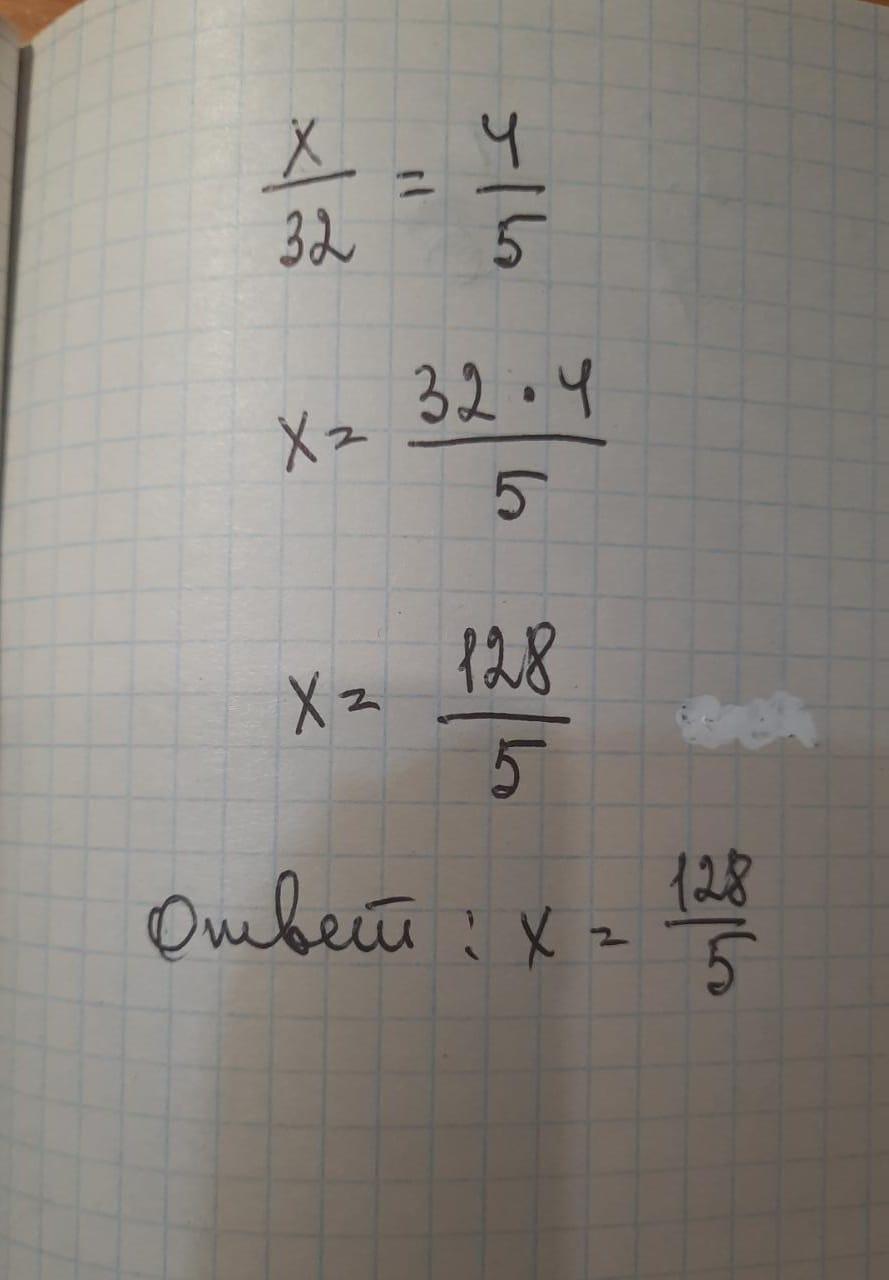 x/32 = 4/5
x = 32 · 4/5
x = 128/5
Ответ : x = 128/5